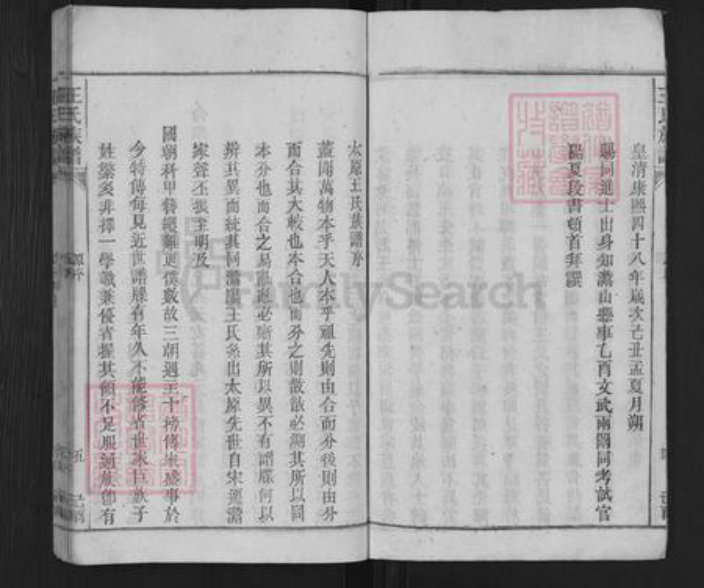 皇清康熙四十八年歲次己丑孟夏月朔
賜同進士出身知灊山縣事乙酉文武兩闈同考試官
陽夏段書頓首拜譔
太原王氏族譜序
蓋聞萬物本乎天人本乎祖先則由合而分後則由分
而合其大較也本合也而分之則散散必溯其所以同
本分也而合之易混混必辨其所以異不有譜牒何以
辨其異而統其同灊陽王氏系出太原先世自宋遷灊
家聲丕振王明及
國朝科甲簪纓難更僕數故三朝遇王十榜傳來盛事於
今特傳每見近世譜牒有年久不能修者世家巨族子
姓繁多非擇一學識兼優者握其領不足服通族卽有
王氏族譜
FamilySearch